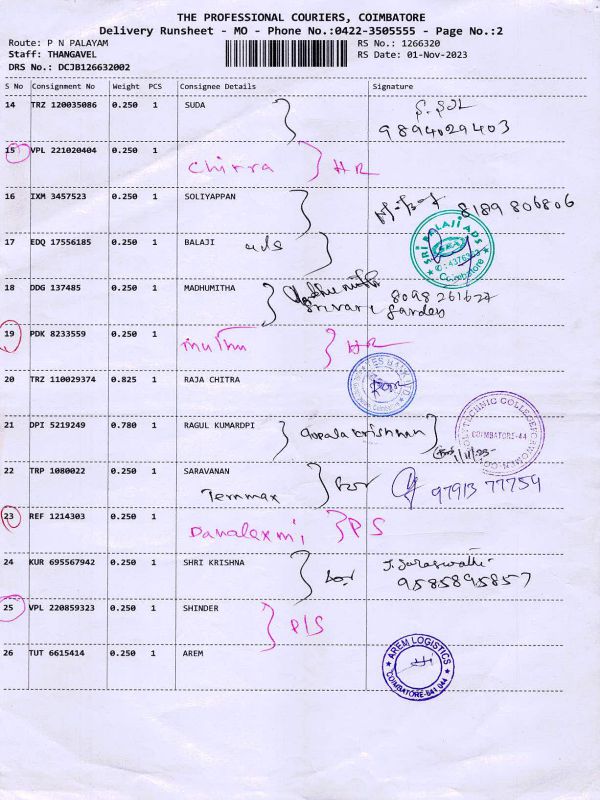 THE PROFESSIONAL COURIERS, COIMBATORE
Delivery Runsheet - MO - Phone No.:0422-3505555 - Page No.:2
Route: P N PALAYAM RS No.: 1266320
Staff: THANGAVEL RS Date: 01-Nov-2023
DRS No.: DCJB126632002
S No Consignment No Weight PCS Consignee Details Signature
14 TRZ 120035086 0.250 1 SUDA
9894029403
15 VPL 221020404 0.250 1
Chitra HR
16 IXM 3457523 0.250 1 SOLIYAPPAN
8189 806806
17 EDQ 17556185 0.250 1 BALAJI ads
SRI BALAJI ADS
Coimbatore
18 DDG 137485 0.250 1 MADHUMITHA
8098261627
Srivari Garden
19 PDK 8233559 0.250 1
muthu HR
20 TRZ 110029374 0.825 1 RAJA CHITRA
YES BANK LTD
21 DPI 5219249 0.780 1 RAGUL KUMARDPI
Gopala Krishnan
COIMBATORE-44
22 TRP 1080022 0.250 1 SARAVANAN
Temmax 97913 77754
23 REF 1214303 0.250 1
Danalaxmi PS
24 KUR 695567942 0.250 1 SHRI KRISHNA
J. Saraswathi
9585895857
25 VPL 220859323 0.250 1 SHINDER
P/S
26 TUT 6615414 0.250 1 AREM
AREM LOGISTICS
COIMBATORE-641 044